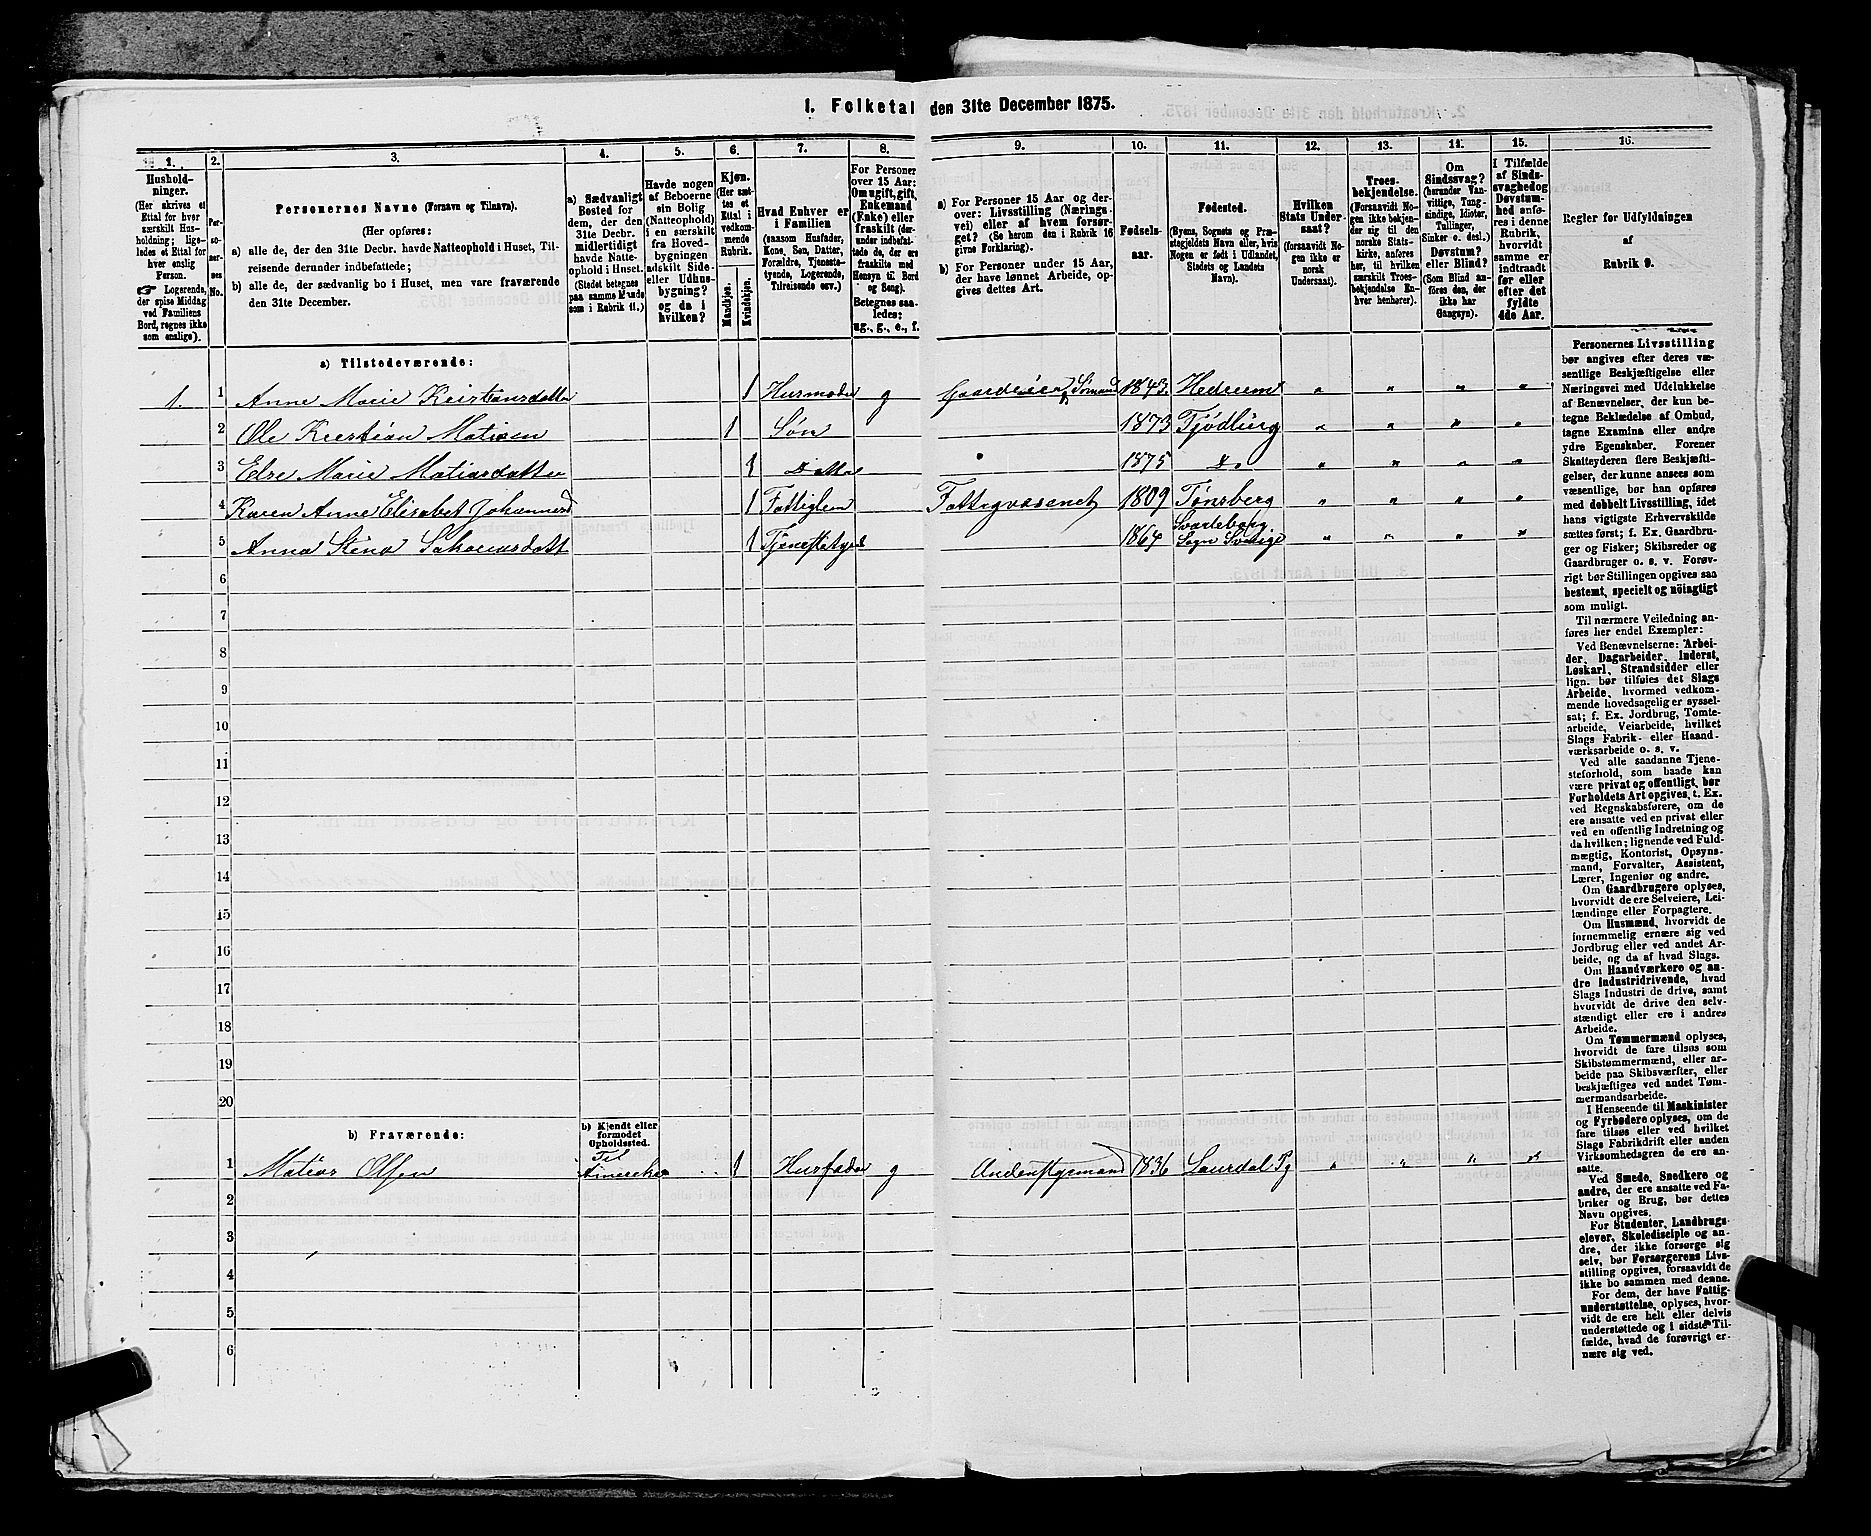 1. Folketal den 31te December 1875.
1. 2. 3. 4. 5. 6. 7. 8. 9. 10. 11. 12. 13. 14. 15. 16.
Husholdninger.
(Her skrives et
Ettal for hver
særskilt Husholdning;
ligeledes et Ettal for
hver enslig
Person.
Logerende,
der spise Middag
ved Familiens
Bord, regnes ikke
som enslige).
Personernes No.
Personernes Navne (Fornavn og Tilnavn).
(Her opføres:
a) alle de, der den 31te Decbr. havde Natteophold i Huset, Tilreisende derunder indbefattede;
b) alle de, der sædvanlig bo i Huset, men vare fraværende
den 31te December.
a) Sædvanligt
Bosted for
dem, der den
31te Decbr.
midlertidigt
havde Natteophold i Huset.
(Stedet betegnes
paa samme Maade
som i Rubrik 11.)
Havde nogen
af Beboerne
sin Bolig
(Natteophold)
i en særskilt
fra Hovedbygningen
adskilt Side-
eller Udhusbygning?
og da i
hvilken?
Kjøn.
(Her sættes et
Ettal i
vedkommende
Rubrik.
Mandkjøn.
Kvindekjøn.
Hvad Enhver er
i Familien
(saasom Husfader,
Kone, Søn, Datter,
Forældre, Tjenestetyende, Logerende,
Tilreisende osv.)
For Personer
over 15 Aar:
Om ugift, gift,
Enkemand
(Enke) eller
fraskilt (derunder indbefattede de, der ere
fraskilte med
Hensyn til Bord
og Seng).
Betegnes saaledes:
ug., g., e., f.
a) For Personer 15 Aar og derover: Livsstilling (Næringsvei) eller af hvem forsørget? (Se herom den i Rubrik 16
givne Forklaring).
b) For Personer under 15 Aar,
der have lønnet Arbeide, opgives dettes Art.
Fødselsaar.
Fødested.
(Byens, Sognets og Præstegjeldets Navn eller, hvis
Nogen er født i Udlandet,
Stedets og Landets
Navn).
Hvilken
Stats Undersaat?
(forsaavidt Nogen ikke er
norsk
Undersaat).
Troesbekjendelse.
(Forsaavidt Nogen ikke bekjender sig til den
norske Statskirke, anføres
her, til hvilken
særskilt Troesbekjendelse Enhver henhører).
Om
Sindssvag?
(herunder Vanvittige, Tungsindige, Idioter,
Tullinger,
Sinker o. desl.)
Døvstum?
eller Blind?
(Som Blind anføres den, der
ikke har
Gangsyn).
I Tilfælde
af Sindssvaghed og
Døvstumhed anføres i denne
Rubrik,
hvorvidt
samme er
indtraadt
før eller
efter det
fyldte
4de Aar.
Regler for Udfyldningen
af
Rubrik 9.
a) Tilstedeværende:
1. 1 Anne Marie Kristiansdatter 1 Husmoder g Gaardeier, Sømand 1843. Hedrum " " " "
2 Ole Kristian Matisen 1 Søn 1873 Tjødling " " " "
3 Else Marie Matiasdatter 1 Datter 1875 do " " " "
4 Karen Anne Elisabet Johannesd 1 Fattiglem Fattigvæsenet 1809 Tønsberg " " " "
5 Anna Stina 1 Tjenestetyende 1864 Svarteborg
Sogn Sverige " " " "
6
7
8
9
10
11
12
13
14
15
16
17
18
19
20
b) Fraværende:
b) Kjendt eller
formodet
Opholdssted.
1 Matias Olsen Til
Amerika 1 Husfader g Andenstyrmand 1836 Laurdal Pg " " " "
2
3
4
5
6
Personernes Livsstilling
bør angives efter deres væsentlige Beskjæftigelse eller
Næringsvei med Udelukkelse
af Benævnelser, der kun betegne Beklædelse af Ombud,
tagne Examina eller andre
ydre Egenskaber. Forener
Skatteyderen flere Beskjæftigelser, der kunne ansees som
væsentlige, bør han opføres
med dobbelt Livsstilling, idet
hans vigtigste Erhvervskilde
sættes først; f. Ex. Gaardbruger og Fisker; Skibsreder og
Gaardbruger o. s. v. Forøvrigt bør Stillingen opgives saa
bestemt, specielt og nöiagtigt
som muligt.
Til nærmere Veiledning anføres her endel Exempler:
Ved Benævnelserne: Arbeider, Dagarbeider, Inderst,
Løskarl, Strandsidder eller
lign. bør tilføies det Slags
Arbeide, hvormed vedkommende hovedsagelig er sysselsat; f. Ex. Jordbrug, Tomtearbeide, Veiarbeide, hvilket
Slags Fabrik- eller Haandværksarbeide o. s. v.
Ved alle saadanne Tjenesteforhold, som baade kan
være privat og offentligt, bør
Forholdets Art opgives, t. Ex.
ved Regnskabsførere, om de
ere ansatte ved en privat eller
ved en offentlig Indretning og
da hvilken; lignende ved Fuldmægtig, Kontorist, Opsynsmand, Forvalter, Assistent,
Lærer, Ingeniør og andre.
Om Gaardbrugere oplyses,
hvorvidt de ere Selveiere, Leilændinge eller Forpagtere.
Om Husmænd, hvorvidt de
fornemmelig ernære sig ved
Jordbrug eller ved andet Arbeide, og da af hvad Slags.
Om Haandværkere og andre Industridrivende, hvad
Slags Industri de drive, samt
hvorvidt de drive den selvstændigt eller ere i andres
Arbeide.
Om Tømmermænd oplyses,
hvorvidt de fare tilsøs som
Skibstømmermænd, eller arbeide paa Skibsværfter, eller
beskjæftiges ved andet Tømmermandsarbeide.
I Henseende til Maskinister
og Fyrbødere oplyses, om de
fare tilsøs eller ved hvilket
Slags Fabrikdrift eller anden
Virksomhedsgren de ere ansatte.
Ved Smede, Snedkere og
andre, der ere ansatte ved Fabriker og Brug, bør dettes
Navn opgives.
For Studenter, Landbrugselever, Skoledisciple og andre, der ikke forsørge sig
selv, bør Forsørgerens Livsstilling opgives, forsaavidt de
ikke bo sammen med denne.
For dem, der have Fattigunderstøttelse, oplyses, hvorvidt de ere helt eller delvis
understøttede og i sidste Tilfælde, hvad de forøvrigt ernære sig ved.